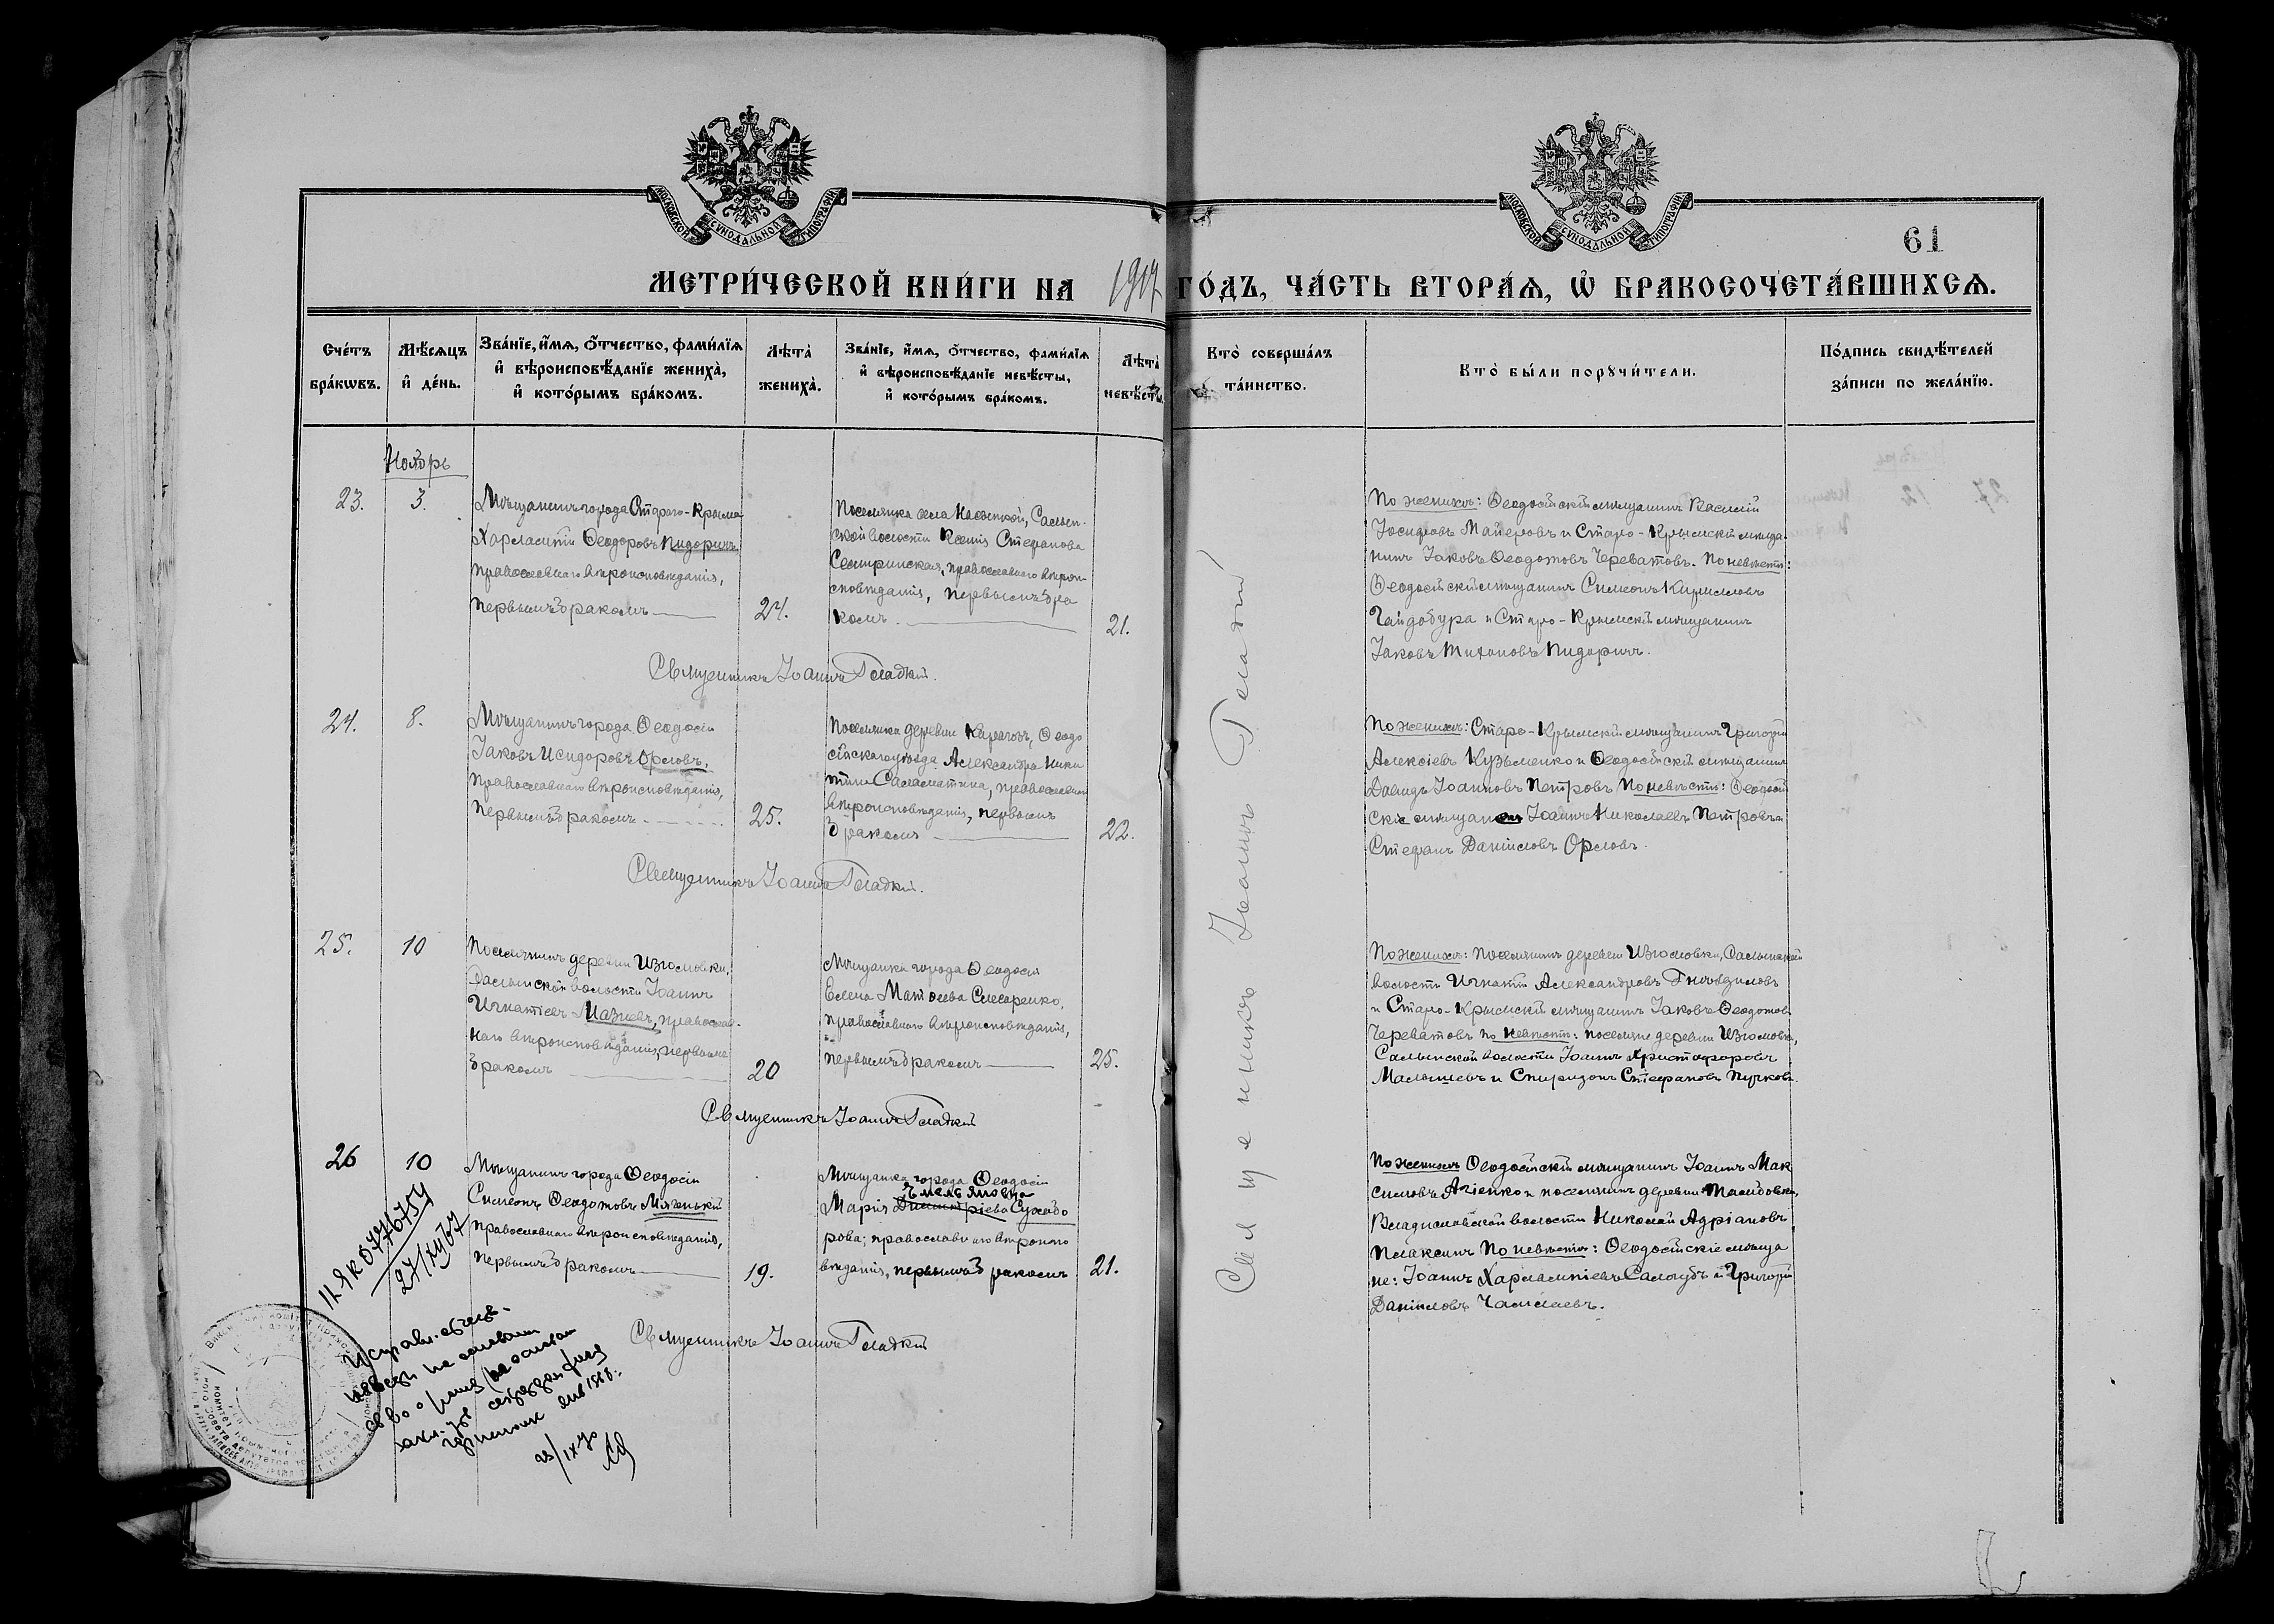 МОСКОВСКОЙ СѴНОДАЛЬНОЙ ТИПОГРАФІИ
МОСКОВСКОЙ СѴНОДАЛЬНОЙ ТИПОГРАФІИ
61
МЕТРИ́ЧЕСКОЙ КНИ́ГИ НА 1917 ГО́ДЪ, ЧА́СТЬ ВТОРА́Ѧ, Ѽ БРАКОСОЧЕТА́ВШИХСѦ.
Сче́тъ
бра́кωвъ.
Мѣ́сяцъ
и҆ де́нь.
Зва́нїе, и҆́мя, ѻ҆́тчество, фами́лїя
и҆ вѣроисповѣ́данїе жениха̀,
и҆ кото́рымъ бра́комъ.
Лѣта̀
жениха̀.
Зва́нїе, и҆́мя, ѻ҆́тчество, фами́лїя
и҆ вѣроисповѣ́данїе невѣ́сты,
и҆ кото́рымъ бра́комъ.
Лѣта̀
невѣ́сты.
Кто̀ соверша́лъ
та́инство.
Кто̀ бы́ли порꙋчи́тели.
По́дпись свидѣ́телей
за́писи по жела́нїю.
Ноябрь
23.
3.
Мѣщанинъ города Старого-Крыма
Харлампій Ѳеодоровъ Пидоричъ,
православнаго вѣроисповѣданія,
первымъ бракомъ
24.
Поселянка села
ской волости Ксенія Стефанова
православнаго вѣрои-
сповѣданія, первымъ бра
комъ.
21.
По женихѣ: Ѳеодосійскій мѣщанинъ Василій
Іосифовъ Майеровъ и Старо-Крымскій мѣща
нинъ Іаковъ Ѳеодотовъ Череватовъ. По невѣстѣ:
Ѳеодосійскій мѣщанинъ Симеонъ Кирилловъ
Гайдобура и Старо-Крымскій мѣщанинъ
Іаковъ Тихоновъ Пидоричъ.
Священникъ Іоаннъ Гладкій.
24.
8.
Мѣщанинъ города Ѳеодосіи
Іаковъ Исидоровъ Орловъ,
православнаго вѣроисповѣданія,
первымъ бракомъ
25.
Поселянка деревни Карагозъ, Ѳеодо
сійскаго уѣзда Александра Ники
тина Саламатина, православнаго
вѣроисповѣданія, первымъ
бракомъ
22.
По женихѣ: Старо-Крымскій мѣщанинъ Григорій
Алексіевъ Кузьменко и Ѳеодосійскій мѣщанинъ
Давидъ Іоанновъ Петровъ По невѣстѣ: Ѳеодосій
скіе мѣщане Іоаннъ Николаевъ Петровъ и
Стефанъ Даніиловъ Орловъ.
Священникъ Іоаннъ Гладкій.
25.
10
Поселянинъ деревни Изюмовки,
Салынской волости Іоаннъ
Игнатіевъ Мазневъ, православ-
наго вѣроисповѣданія, первымъ
бракомъ
20
Мѣщанка города Ѳеодосіи
Елена Матѳіева Слюсаренко,
православнаго вѣроисповѣданія,
первымъ бракомъ
25.
По женихѣ: поселянинъ деревни Изюмовки, Салынской
волости Игнатій Александровъ
и Старо-Крымскій мѣщанинъ Іаковъ Ѳеодотовъ
Череватовъ по невѣстѣ: поселяне деревни Изюмовки,
Салынской волости Іоаннъ Христофоровъ
Малышевъ и Спиридонъ Стефановъ Пучковъ.
Священникъ Іоаннъ Гладкій
26
10
Мѣщанинъ города Ѳеодосіи
Симеонъ Ѳеодотовъ Мяленькій
православнаго вѣроисповѣданія,
первымъ бракомъ
19.
Мѣщанка города Ѳеодосіи
Емельяновна
Марія Димитріева Сухобо
рова; православнаго вѣроиспо
вѣданія, первымъ бракомъ
21.
По женихѣ Ѳеодосійскій мѣщанинъ Іоаннъ Мак
симовъ Агіенко и поселянинъ деревни
Владиславской волости Николай Адріановъ
Плаксинъ По невѣстѣ: Ѳеодосійскіе мѣща
не: Іоаннъ Харлампіевъ Салогубъ и Григорій
Даніиловъ
Священникъ Іоаннъ Гладкій
Священникъ Іоаннъ Гладкій